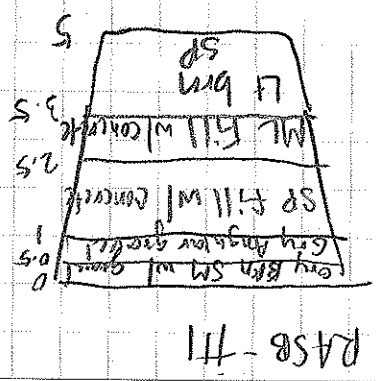 RASB -
0 Gry Brn SM w/ gravel
0.5 Gry Angular gravel
1 SP fill w/ concrete
2.5 ML Fill w/ concrete
3.5 Lt brn
SP
5